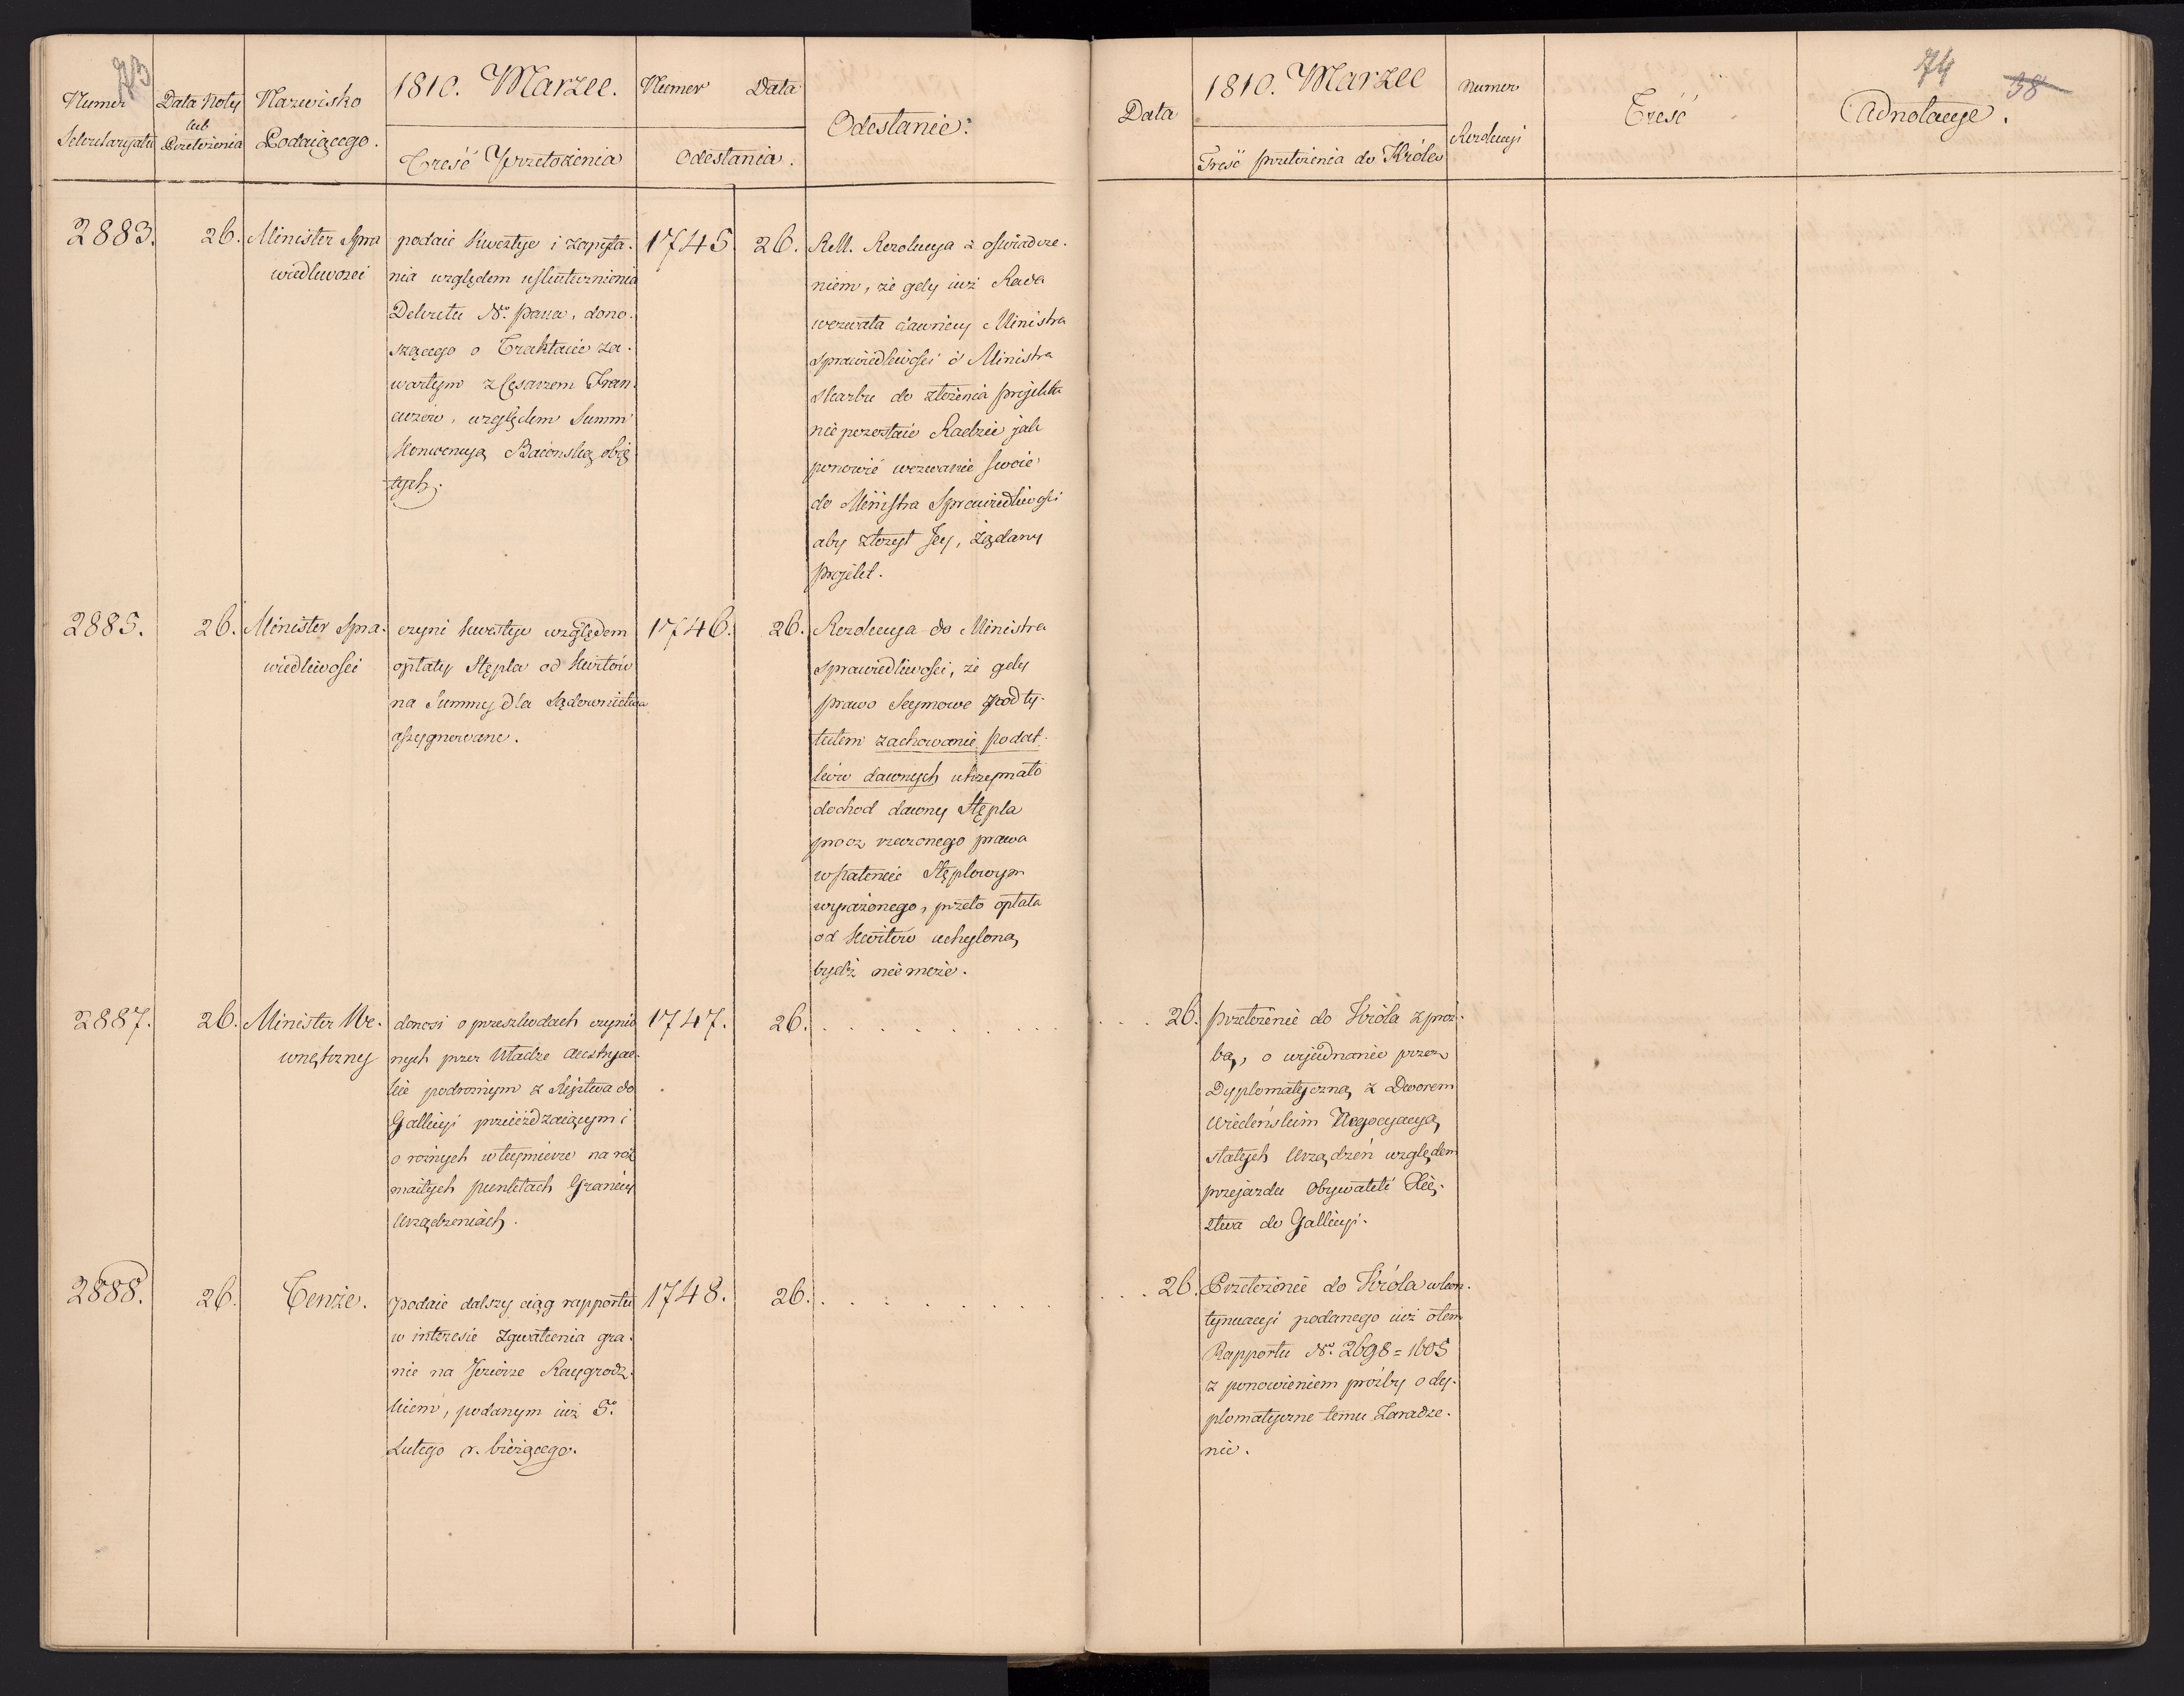 73
Numer Sekretaryatu
Data Noty lub Przełożenia
Nazwisko Podaiącego.
1810. Marzec.
Treść Przełożenia
Numer Data
Odesłania.
Odesłanie.
2883.
26.
Minister Spra
wiedliwości
podaie kwestye i zapyta-
nia względem uskutecznienia
Dekretu N. Pana, dono-
szącego o Traktacie za-
wartym z Cesarzem Fran-
cuzów, względem Summ
Konwencyą Baiońską obię
tych.
1745.
26.
Rezolucya z oświadcze-
niem, że gdy iuż Rada
wezwała dawniey Ministra
Sprawiedliwości i Ministra
Skarbu do złożenia projektu
nie pozostaie Radzie jak
ponowić wezwanie swoie
do Ministra Sprawiedliwości
aby złożył Jey, żądany
projekt.
2885.
26.
Minister Spra-
wiedliwości
czyni kwestye względem
opłaty Stępla od kwitów
na Summy dla Sądownictwa
assygnowane.
1746.
26.
Rezolucya do Ministra
Sprawiedliwości, że gdy
prawo Seymowe pod ty-
tułem zachowanie podat-
ków dawnych utrzymało
dochod dawny Stępla
procz rzeczonego prawa
w patencie Stęplowym
wyrażonego, przeto opłata
od kwitów uchyloną
bydź nie może.
2887.
26.
Minister We-
wnętrzny
donosi o przeszkodach czynio
nych przez Władze Austryac-
kie podrożnym z Xięztwa do
Gallicyi przeieżdzaiącym i
o rożnych w teymierze na roz
maitych punktach Granicy
Urządzeniach.
1747.
26. . . . . . . . .
2888.
26.
Tenże.
podaie dalszy ciąg rapportu
w interesie zgwałcenia gra-
nic na Jeziorze Raygrodz-
kiem, podanym iuż 5.
Lutego r. bieżącego.
1748.
26. . . . . . . . .
74
38
Data
1810. Marzec
Treść przełożenia do Króla
Numer
Rezolucyi
Treść
Adnotacye.
. . . 26.
Przełożenie do Króla z proź-
bą, o wyiednanie przez
Dyplomatyczną z Dworem
Wiedeńskim Negocyacyą
stałych Urządzeń względem
przejazdu Obywateli Xię-
ztwa do Gallicyi.
. . . 26.
Przełożenie do Króla w kon-
tynuacyi podanego iuż o tem
Rapportu N. 2698 = 1605
z ponowieniem proźby o dy-
plomatyczne temu Zaradze-
nie.